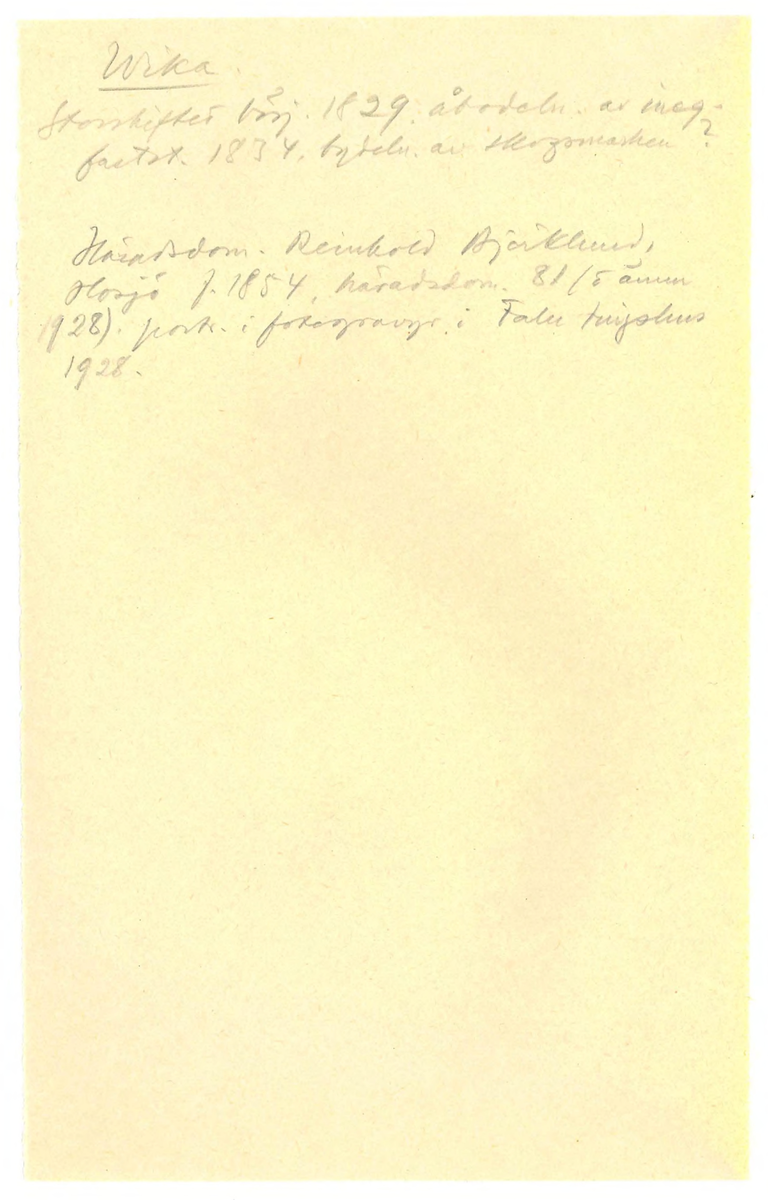 Wika.
Storskiftet börj. 1829. åbodeln. av ineg-
fastst. 1834. bydeln. av skogsmarken ?
Häradsdom. Reinhold Björklund,
Hosjö f. 1854, häradsdom. 81 (t ännu
1928). portr. i fotogravyr i Falu tingshus
1928.